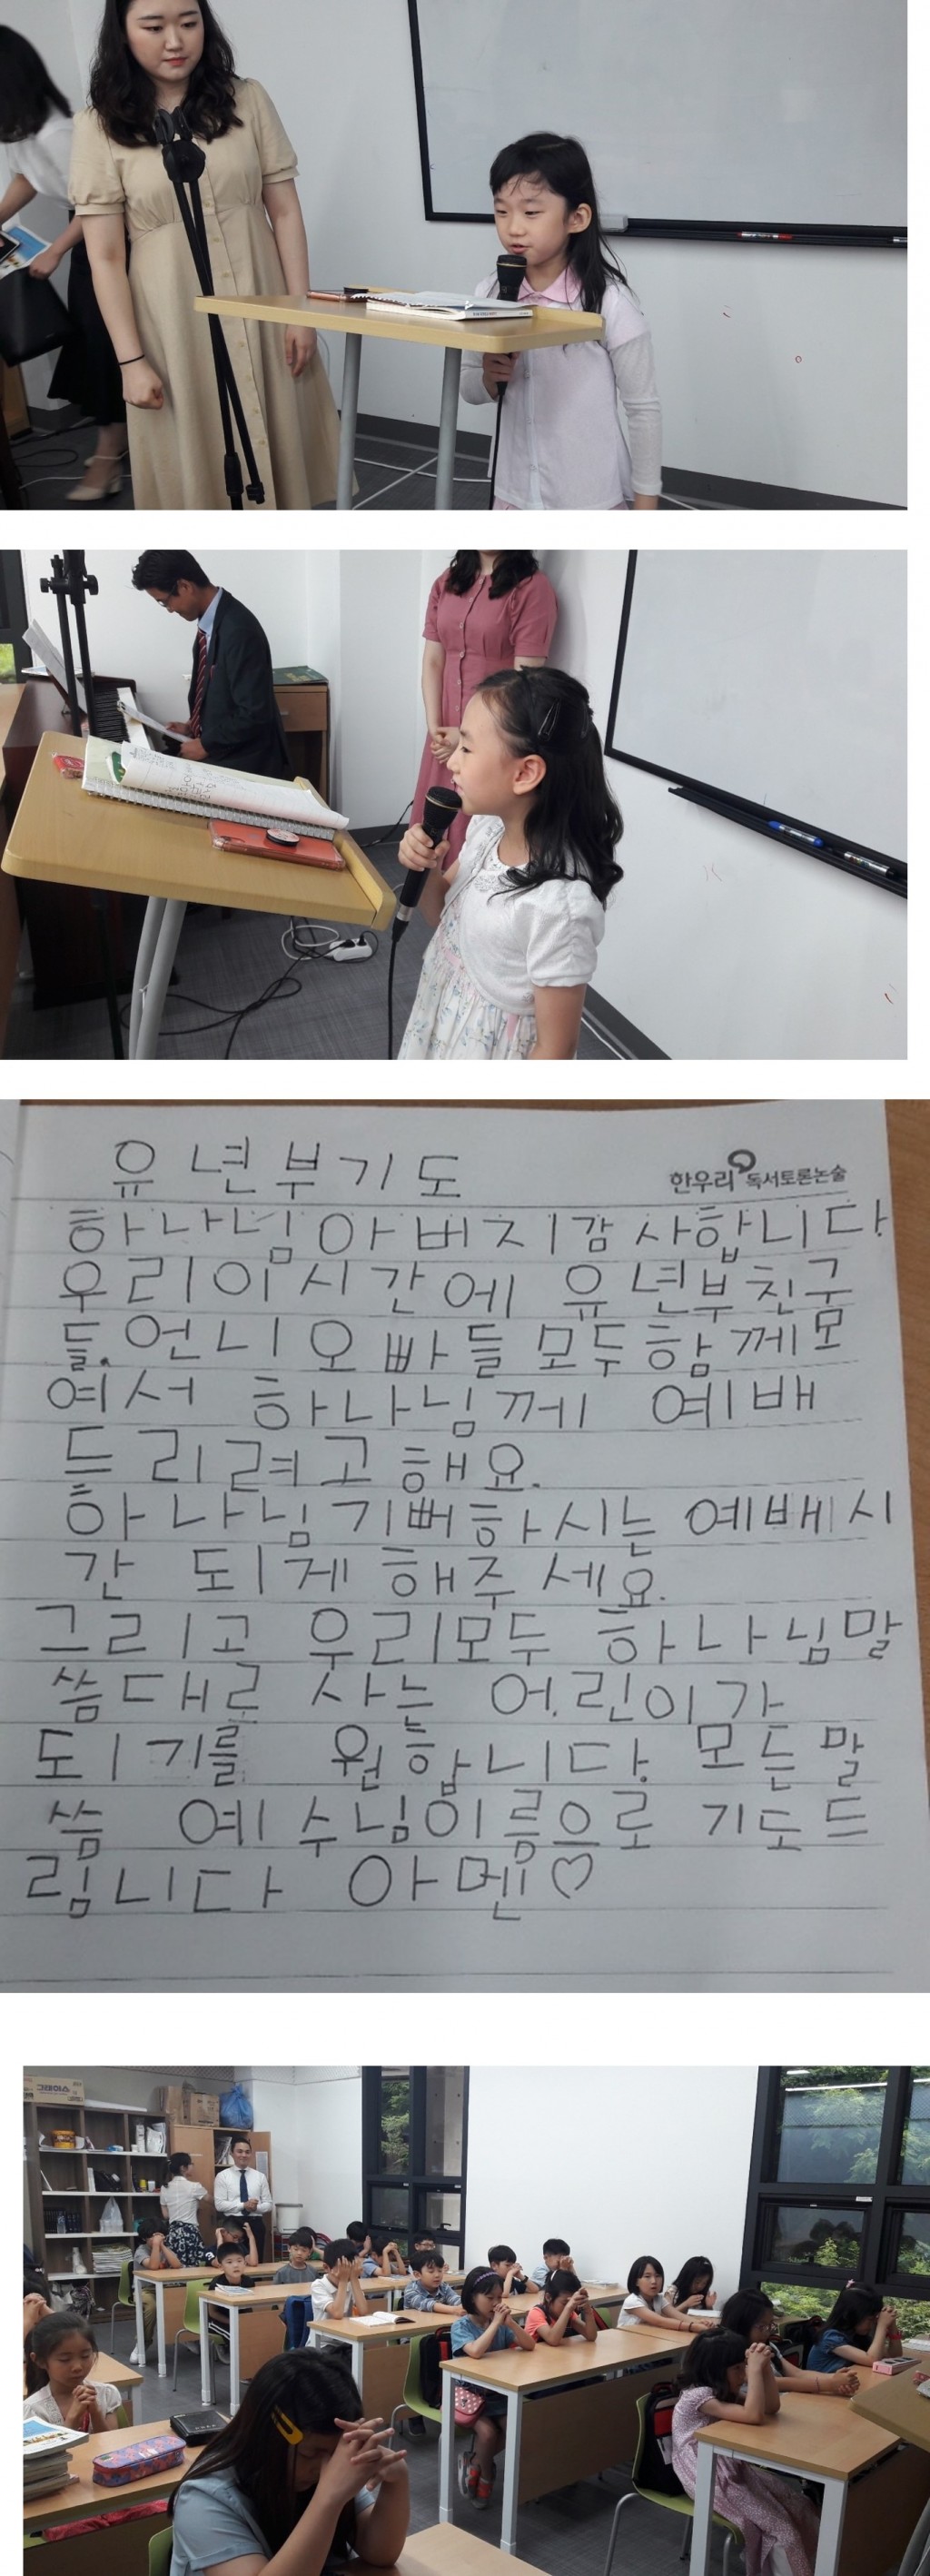 유년부기도
한우리 독서토론논술
하나님아버지감사합니다.
우리이시간에 유년부친구
들.언니오빠들 모두함께모
여서 하나님께 예배
드리려고해요.
하나님기뻐하시는 예배시
간 되게 해주세요.
그리고 우리모두 하나님말
씀대로 사는 어린이가
되기를 원합니다. 모든말
씀 예수님이름으로 기도드
립니다 아멘♡
그레이스